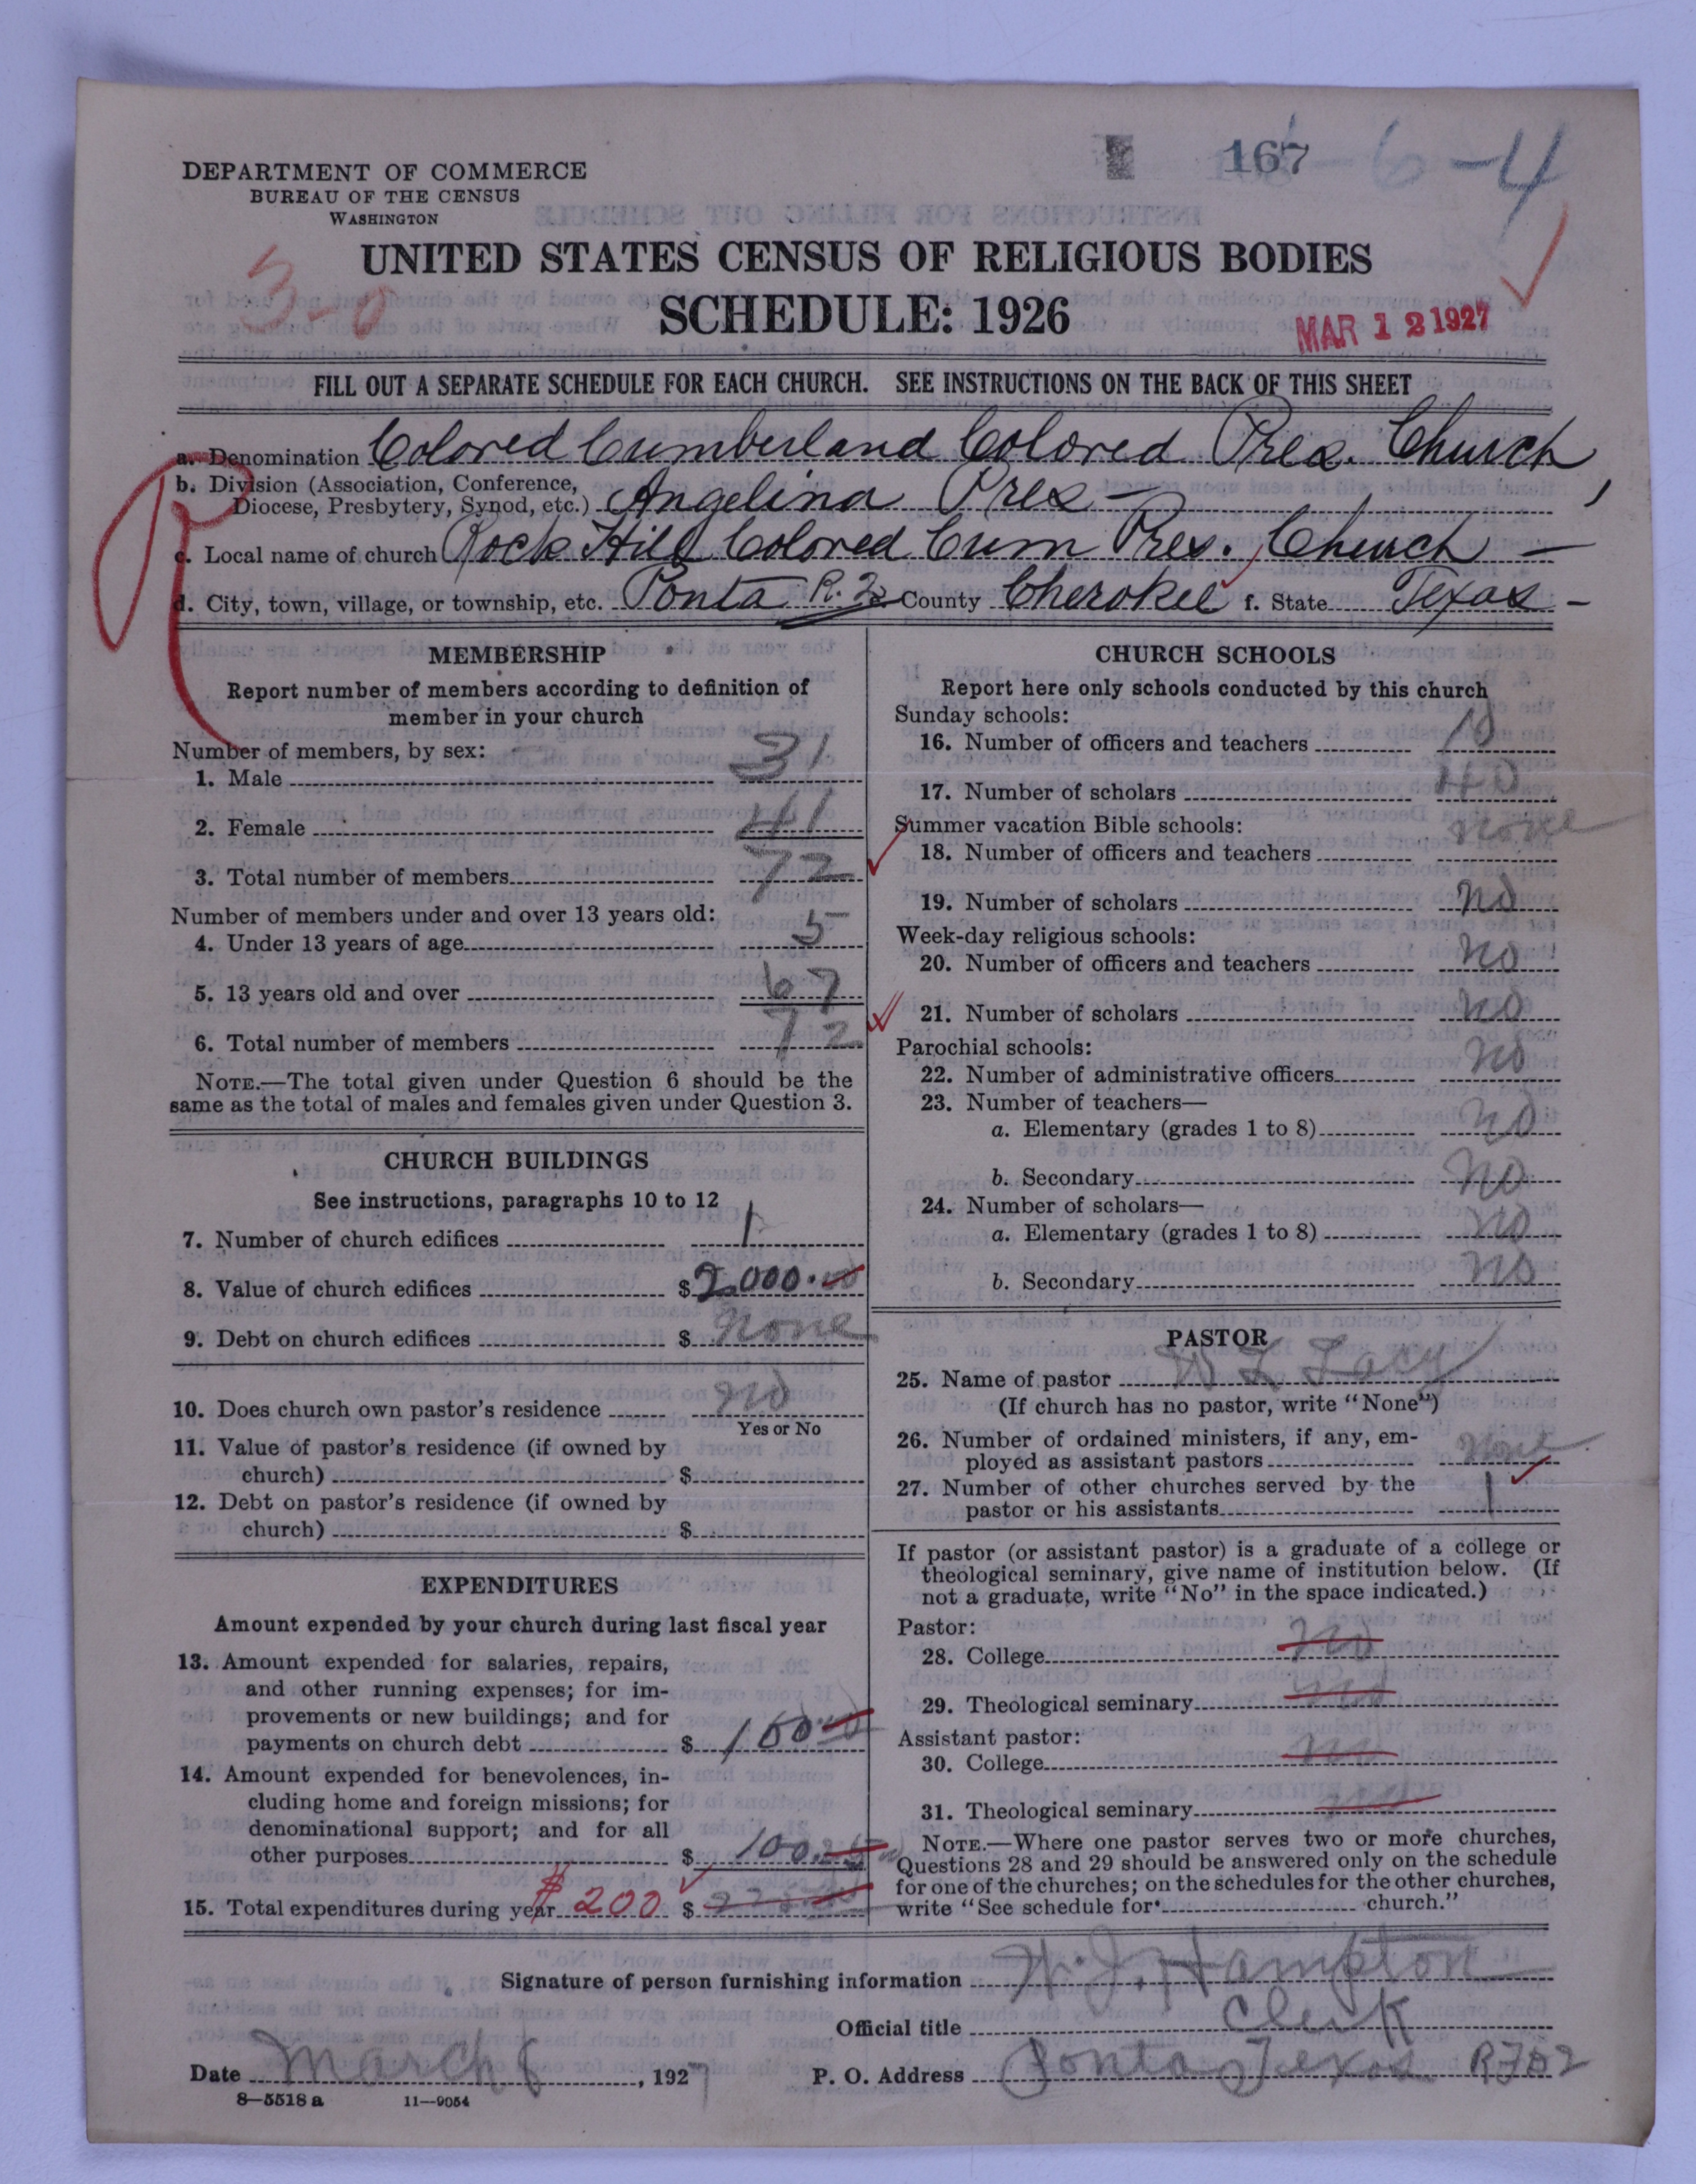 167 -6-4
DEPARTMENT OF COMMERCE
BUREAU OF THE CENSUS
WASHINGTON
UNITED STATES CENSUS OF RELIGIOUS BODIES
3-0
SCHEDULE: 1926
MAR 12 1927
FILL OUT A SEPARATE SCHEDULE FOR EACH CHURCH. SEE INSTRUCTIONS ON THE BACK OF THIS SHEET
a. Denomination Colored Cumberland Colored Pres. Church,
b. Division (Association, Conference,
Diocese, Presbytery, Synod, etc.) Angelina Pres -
c. Local name of church Rock Hill Colored Cum Pres. Church -
d. City, town, village, or township, etc. Ponta R. 2 e. County Cherokee f. State Texas -
MEMBERSHIP
Report number of members according to definition of
member in your church
Number of members, by sex:
1. Male 31
2. Female 41
3. Total number of members 72
Number of members under and over 13 years old:
4. Under 13 years of age 5
5. 13 years old and over 67
6. Total number of members 72
NOTE.—The total given under Question 6 should be the
same as the total of males and females given under Question 3.
CHURCH BUILDINGS
See instructions, paragraphs 10 to 12
7. Number of church edifices 1
8. Value of church edifices $ 2,000.00
9. Debt on church edifices $ None
10. Does church own pastor's residence no
Yes or No
11. Value of pastor's residence (if owned by
church) $
12. Debt on pastor's residence (if owned by
church) $
EXPENDITURES
Amount expended by your church during last fiscal year
13. Amount expended for salaries, repairs,
and other running expenses; for im-
provements or new buildings; and for
payments on church debt $ 100
14. Amount expended for benevolences, in-
cluding home and foreign missions; for
denominational support; and for all
other purposes $ 100
15. Total expenditures during year $200 $
CHURCH SCHOOLS
Report here only schools conducted by this church
Sunday schools:
16. Number of officers and teachers 10
17. Number of scholars 40
Summer vacation Bible schools:
18. Number of officers and teachers none
19. Number of scholars no
Week-day religious schools:
20. Number of officers and teachers no
21. Number of scholars no
Parochial schools:
22. Number of administrative officers no
23. Number of teachers—
a. Elementary (grades 1 to 8) no
b. Secondary no
24. Number of scholars—
a. Elementary (grades 1 to 8) no
b. Secondary no
PASTOR
25. Name of pastor W L Lacy
(If church has no pastor, write "None")
26. Number of ordained ministers, if any, em-
ployed as assistant pastors none
27. Number of other churches served by the
pastor or his assistants 1
If pastor (or assistant pastor) is a graduate of a college or
theological seminary, give name of institution below. (If
not a graduate, write "No" in the space indicated.)
Pastor:
28. College no
29. Theological seminary no
Assistant pastor:
30. College no
31. Theological seminary no
NOTE.—Where one pastor serves two or more churches,
Questions 28 and 29 should be answered only on the schedule
for one of the churches; on the schedules for the other churches,
write "See schedule for church."
Signature of person furnishing information W. J. Hampton
Official title Clerk
Date March 8, 1927 P. O. Address Ponta Texas RFD2
8—5518 a 11—9054